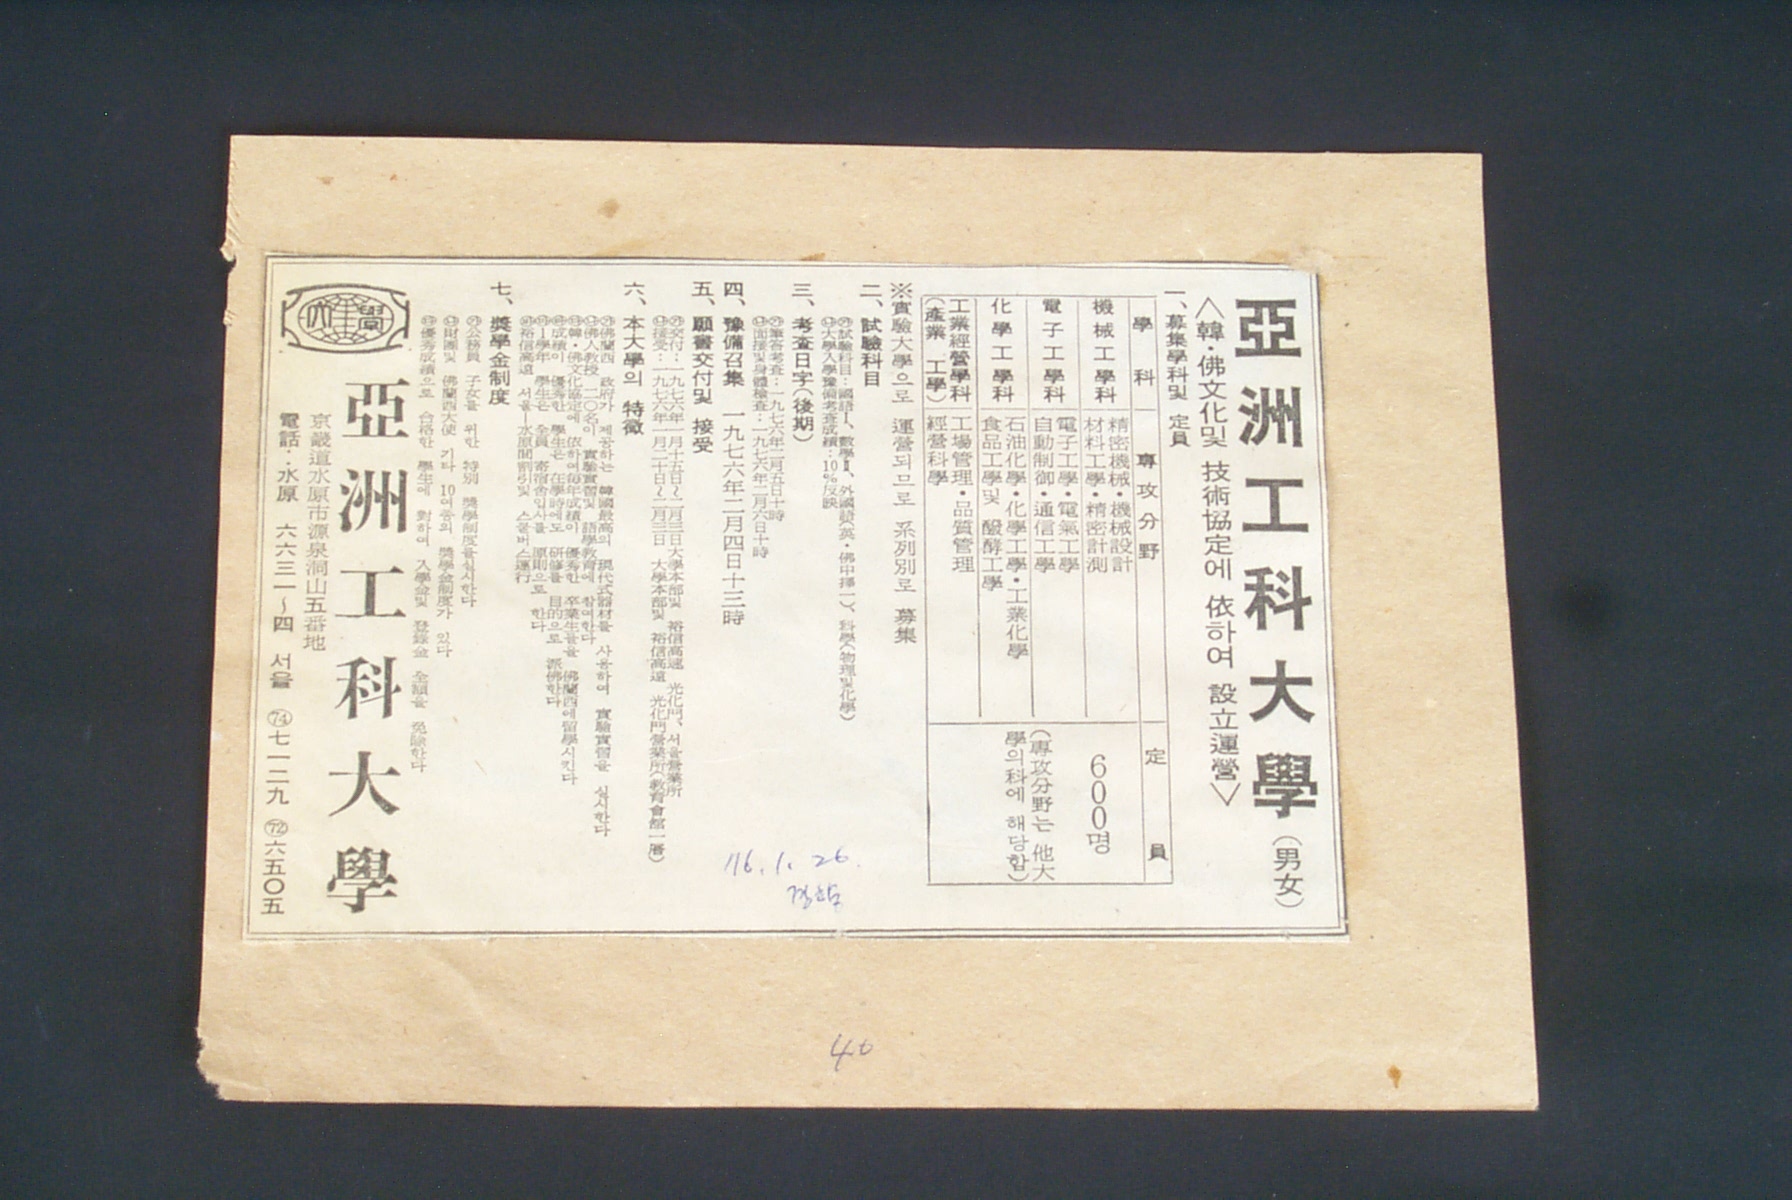 亞洲工科大學 (男女)
<韓·佛文化및 技術協定에 依하여 設立運營>
一、募集學科및 定員
學科 專攻分野 定員
機械工學科 精密機械·機械設計
材料工學·精密計測
電子工學科 電子工學·電氣工學
自動制御·通信工學
化學工學科 石油化學·化學工學·工業化學
食品工學및 醱酵工學
工業經營學科 工場管理·品質管理
(產業 工學) 經營科學
600명
(專攻分野는 他大
學의 科에 해당함)
※實驗大學으로 運營되므로 系列別로 募集
二、試驗科目
㉮試驗科目:國語Ⅰ、數學Ⅱ、外國語(英·佛中擇一)、科學(物理및化學)
㉯大學入學豫備考査成績:10%反映
三、考査日字(後期)
㉮筆答考査:一九七六年二月五日十時
㉯面接및身體檢査:一九七六年二月六日十時
四、豫備召集 一九七六年二月四日十三時
五、願書交付및 接受
㉮交付:一九七六年一月十五日~二月三日大學本部및 裕信高速 光化門、서울營業所
㉯接受:一九七六年一月二十日~二月三日 大學本部및 裕信高速 光化門營業所(教育會館一層)
六、本大學의 特徵
㉮佛蘭西 政府가 제공하는 韓國最高의 現代式器材를 사용하여 實驗實習을 실시한다
㉯佛人教授 二○名이 實驗實習및 語學教育에 참여한다
㉰韓·佛文化協定에 依하여每年成績이 優秀한 卒業生을 佛蘭西에留學시킨다
㉱成績이 優秀한 學生은 在學時에도 研修를 目的으로 派佛한다
㉲一學年 學生은 全員 寄宿舍입사를 原則으로 한다
㉳裕信高速 서울-水原間割引및 스쿨버스運行
七、奬學金制度
㉮公務員 子女를 위한 特別 奬學制度를실시한다
㉯財團및 佛蘭西大使 기타 10여종의 奬學金制度가 있다
㉰優秀成績으로 合格한 學生에 對하여 入學金및 登錄金 全額을 免除한다
大學
亞洲工科大學
京畿道水原市源泉洞山五番地
電話:水原 六六三一~四 서울 ㊼七一二九 ㊷六五○五
'76. 1. 26.
경향
40